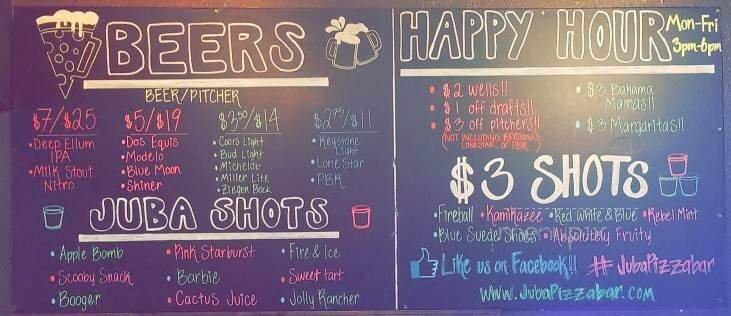 BEERS
BEER/PITCHER
$7/$25
Deep Ellum
IPA
Milk Stout
Nitro
$5/$19
Dos Equis
Modelo
Blue Moon
Shiner
$3⁵⁰/$14
Coors Light
Bud Light
Michelob
Miller Lite
Ziegen Bock
$2⁷⁵/$11
Keystone
Light
Lone Star
PBR
JUBA SHOTS
Apple Bomb
Scooby Snack
Booger
Pink Starburst
Barbie
Cactus Juice
Fire & Ice
Sweet tart
Jolly Rancher
HAPPY HOUR
Mon-Fri
3pm-6pm
$2 wells!!
$1 off drafts!!
$3 off pitchers!!
(NOT INCLUDING KEYSTONE,
LONESTAR, OR PBR)
$3 Bahama
Mamas!!
$3 Margaritas!!
$3 SHOTS
Fireball Kamikazee Red, White & Blue Rebel Mint
Blue Suede Shoes Absolutely Fruity
Like us on Facebook!! # JubaPizzabar
www.JubaPizzabar.com